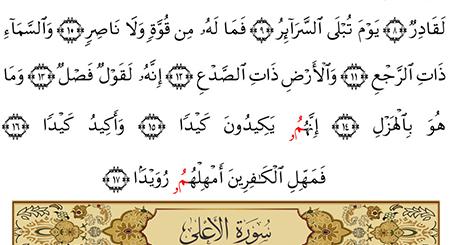 لَقَادِرٌ ﴿٨﴾ يَوْمَ تُبْلَى ٱلسَّرَآئِرُ ﴿٩﴾ فَمَا لَهُۥ مِن قُوَّةٍ وَلَا نَاصِرٍ ﴿١٠﴾ وَٱلسَّمَآءِ
ذَاتِ ٱلرَّجْعِ ﴿١١﴾ وَٱلْأَرْضِ ذَاتِ ٱلصَّدْعِ ﴿١٢﴾ إِنَّهُۥ لَقَوْلٌ فَصْلٌ ﴿١٣﴾ وَمَا
هُوَ بِٱلْهَزْلِ ﴿١٤﴾ إِنَّهُمُۥ يَكِيدُونَ كَيْدًا ﴿١٥﴾ وَأَكِيدُ كَيْدًا ﴿١٦﴾
فَمَهِّلِ ٱلْكَـٰفِرِينَ أَمْهِلْهُمُۥ رُوَيْدًۢا ﴿١٧﴾
سُورَةُ الأَعْلَىٰ